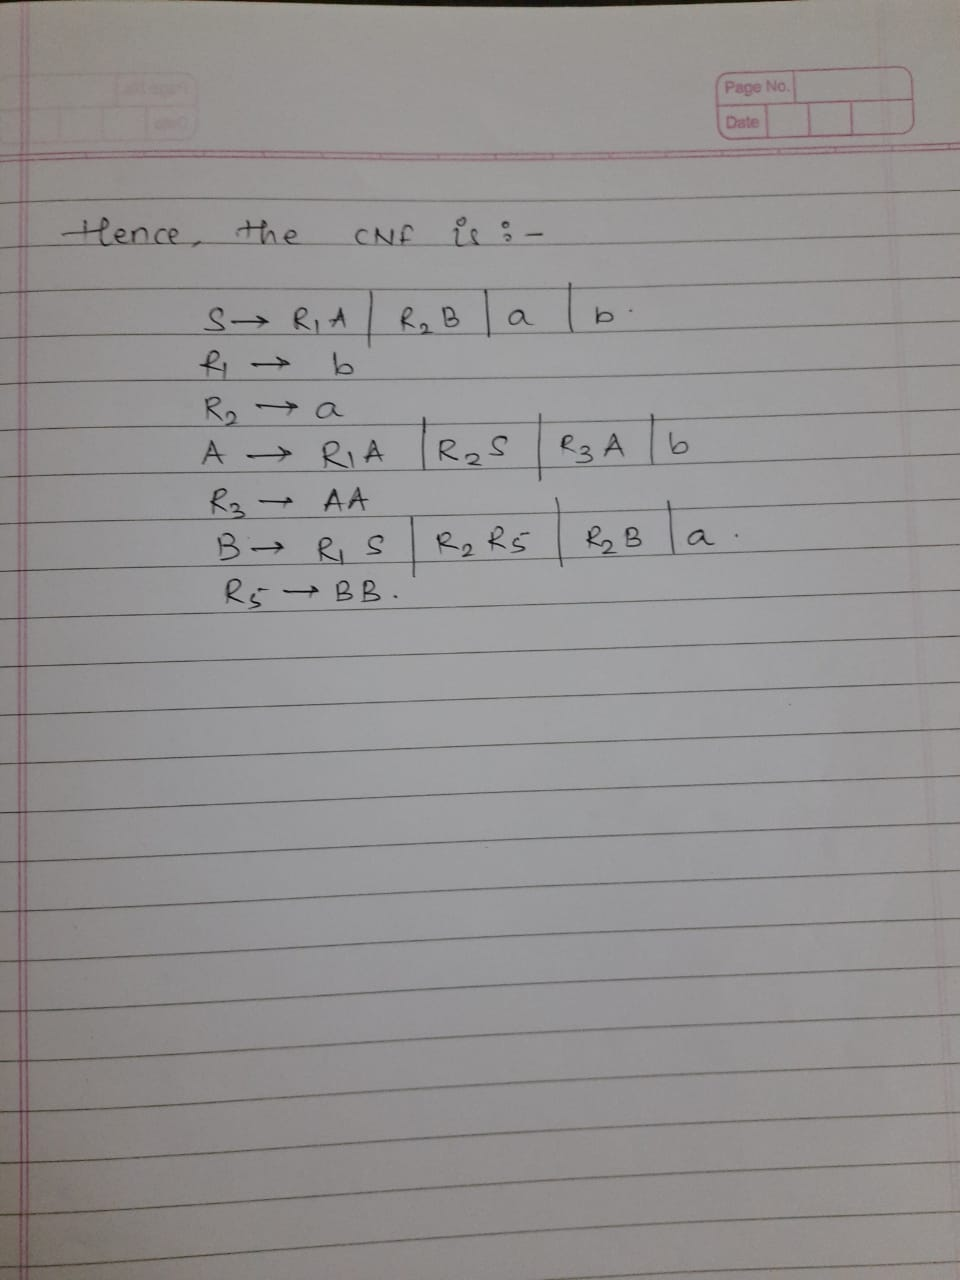 Page No.
Date
Hence, the CNF is :-
S → R₁A | R₂B | a | b.
R₁ → b
R₂ → a
A → R₁A | R₂S | R₃A | b
R₃ → AA
B → R₁S | R₂R₅ | R₂B | a.
R₅ → BB.